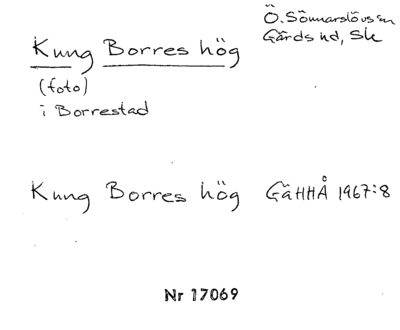 Kung Borres hög
Ö. Sönnarslövs sn
Gärds hd, Sk
(foto)
i Borrestad
Kung Borres hög GäHHÅ 1967:8
Nr 17069